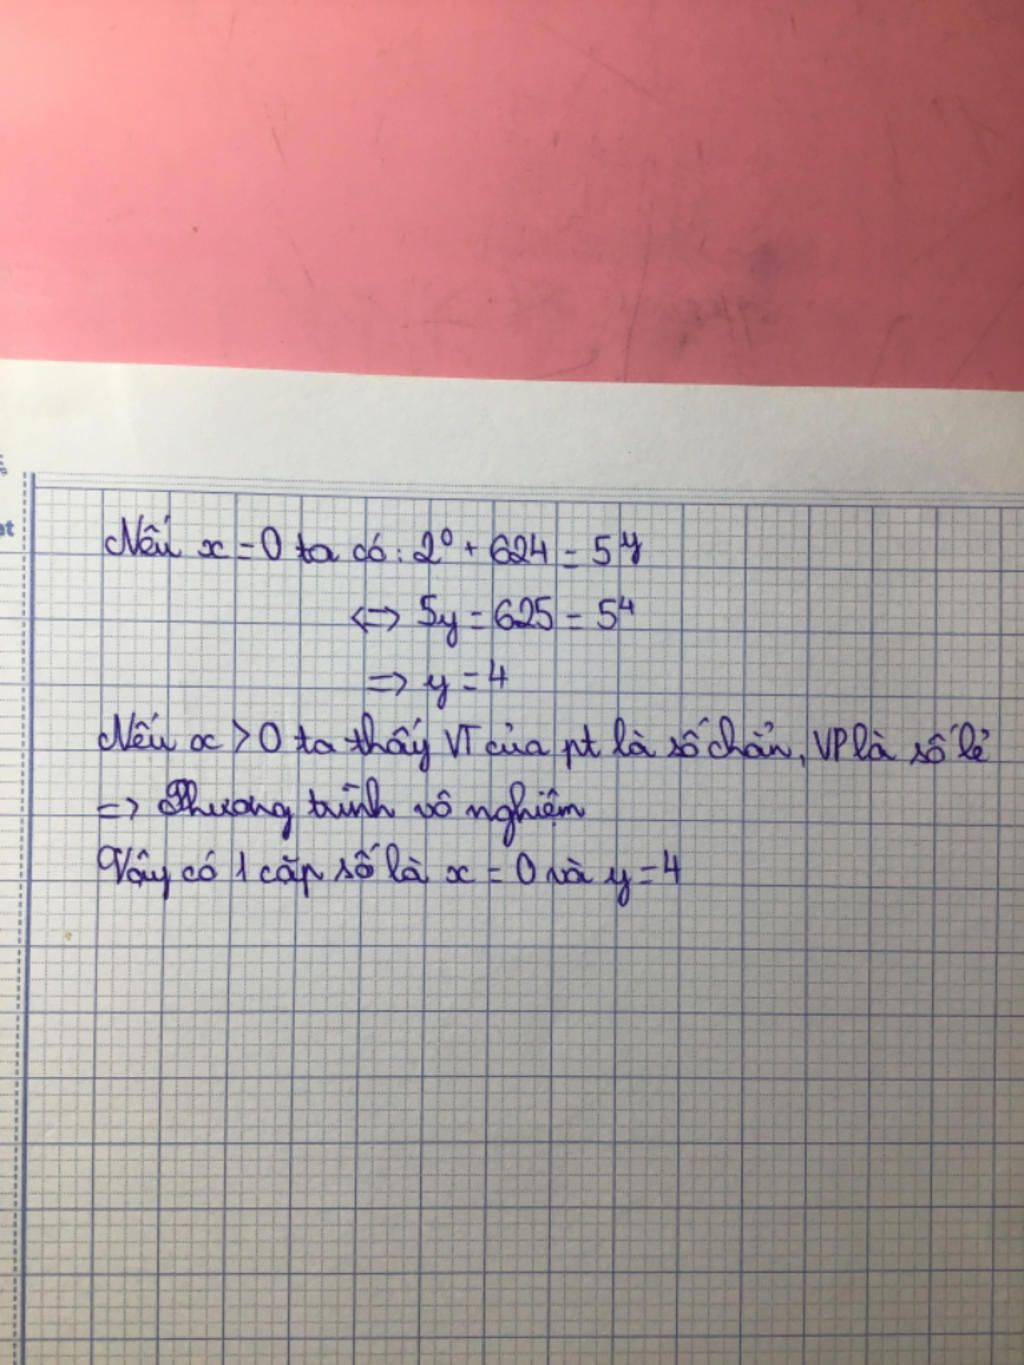 Nếu x = 0 ta có: 2⁰ + 624 = 5ʸ
<=> 5y = 625 = 5⁴
=> y = 4
Nếu x > 0 ta thấy VT của pt là số chẵn, VP là số lẻ
=> Phương trình vô nghiệm
Vậy có 1 cặp số là x = 0 và y = 4